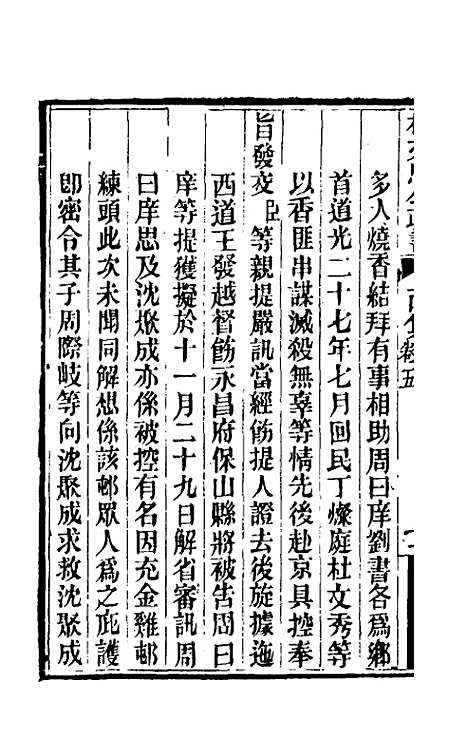 多人燒香結拜有事相助周曰庠劉書各爲鄉
首道光二十七年七月回民丁燦庭杜文秀等
以香匪串謀滅殺無辜等情先後赴京具控奉
旨發交臣等親提嚴訊當經飭提人證去後旋據迤
西道王發越督飭永昌府保山縣將被告周曰
庠等提獲擬於十一月二十九日解省審訊周
曰庠思及沈聚成亦係被控有名因充金雞邨
練頭此次未聞同解想係該邨眾人爲之庇護
卽密令其子周際岐等向沈聚成求救沈聚成
卷五